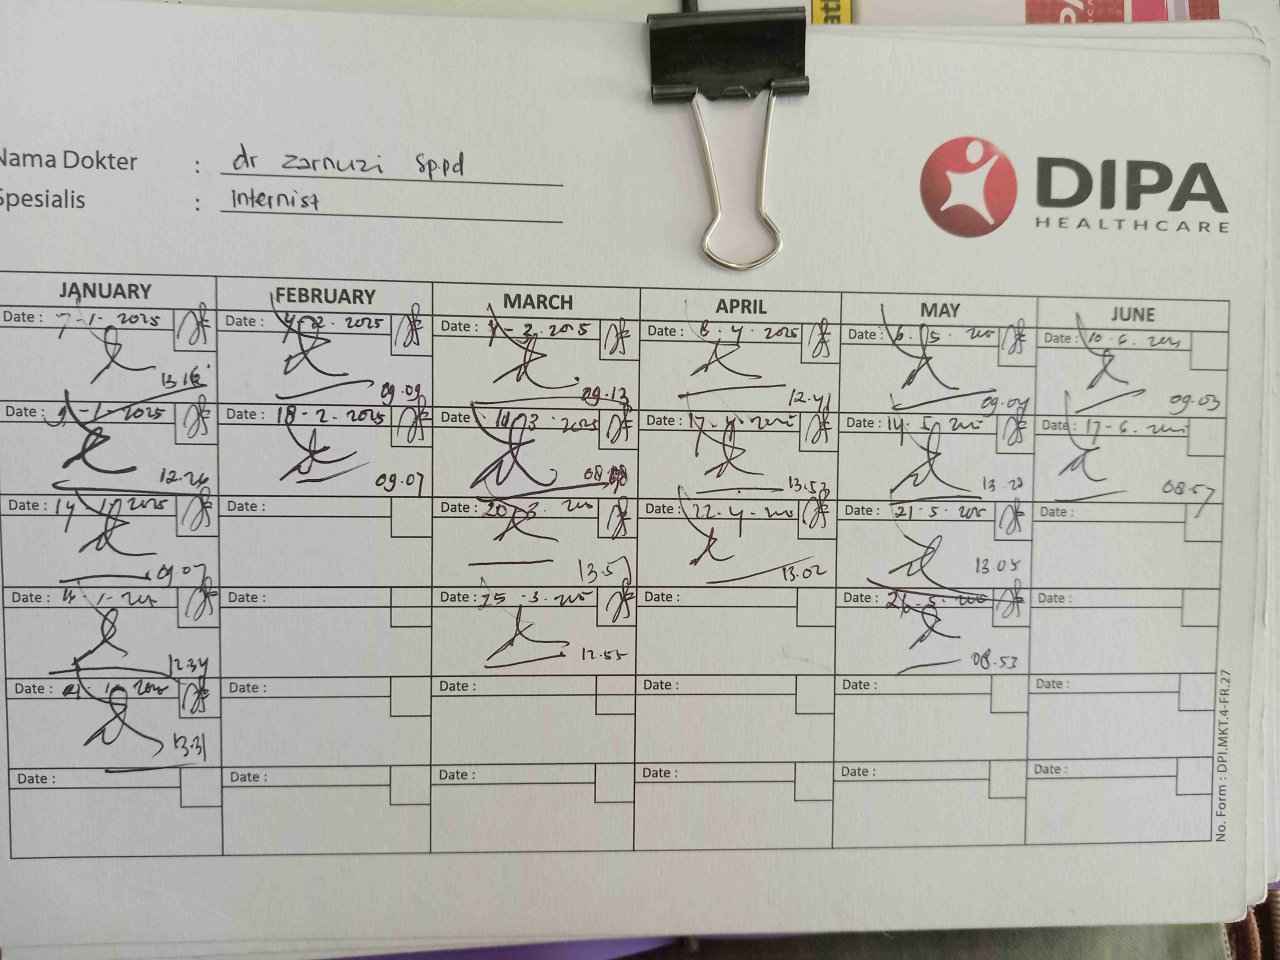 Nama Dokter : dr zarnuzi Sp.pd
Spesialis : Internist
DIPA
HEALTHCARE
JANUARY FEBRUARY MARCH APRIL MAY JUNE
Date : 7-1-2025 Date : 4-2-2025 Date : Date : 8-4-2025 Date : 6-5- Date : 10-6-
13.16 09.09 09.13 12.41 09.04 09.03
Date : 9-1-2025 Date : 18-2-2025 Date : Date : 17-4- Date : 14-5- Date : 17-6-
12.26 09.07 13.57 13.28 08.57
Date : 14-1-2025 Date : Date : 20-3- Date : 22-4- Date : 21-5- Date :
09.07 13.57 13.02 13.05
Date : Date : Date : 25-3- Date : Date : Date :
12.34 12.55 08.53
Date : 21-1-2025 Date : Date : Date : Date : Date :
13.31
Date : Date : Date : Date : Date : Date :
No. Form : DPI.MKT.4-FR.27